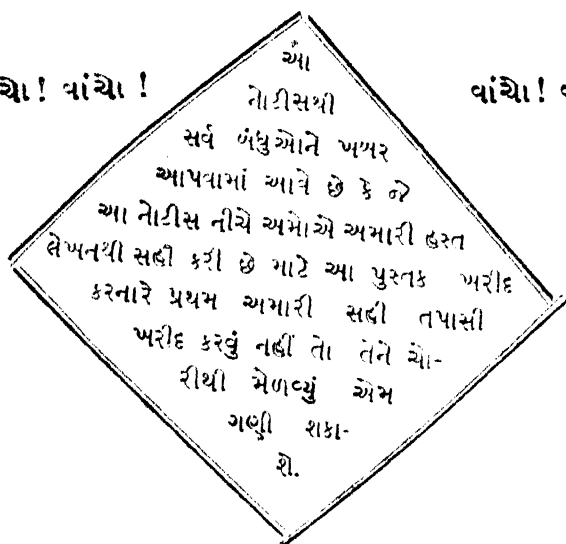 ચો! વાંચો! વાંચો!
આ
નોટીસથી
સર્વ બંધુઓને ખબર
આપવામાં આવે છે કે જે
આ નોટીસ નીચે અમોએ અમારી હસ્ત
લેખનથી સહી કરી છે માટે આ પુસ્તક ખરીદ
કરનારે પ્રથમ અમારી સહી તપાસી
ખરીદ કરવું નહીં તો તેને ચો-
રીથી મેળવ્યું એમ
ગણી શકા-
શે.